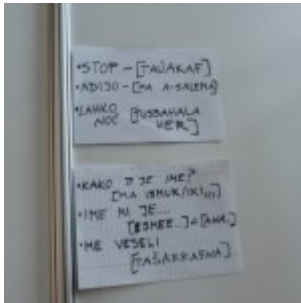 •STOP - [TAUAKAF]
•ADIJO - [MA A-SALEMA]
•LAHKO [TUSBAHALA
NOČ HER]
•KAKO TI JE IME?
[MA ISMUK/IKI...]
•IME MI JE...
[ESMEE..] = [ANA..]
•ME VESELI
[TAŠARRAFNA]